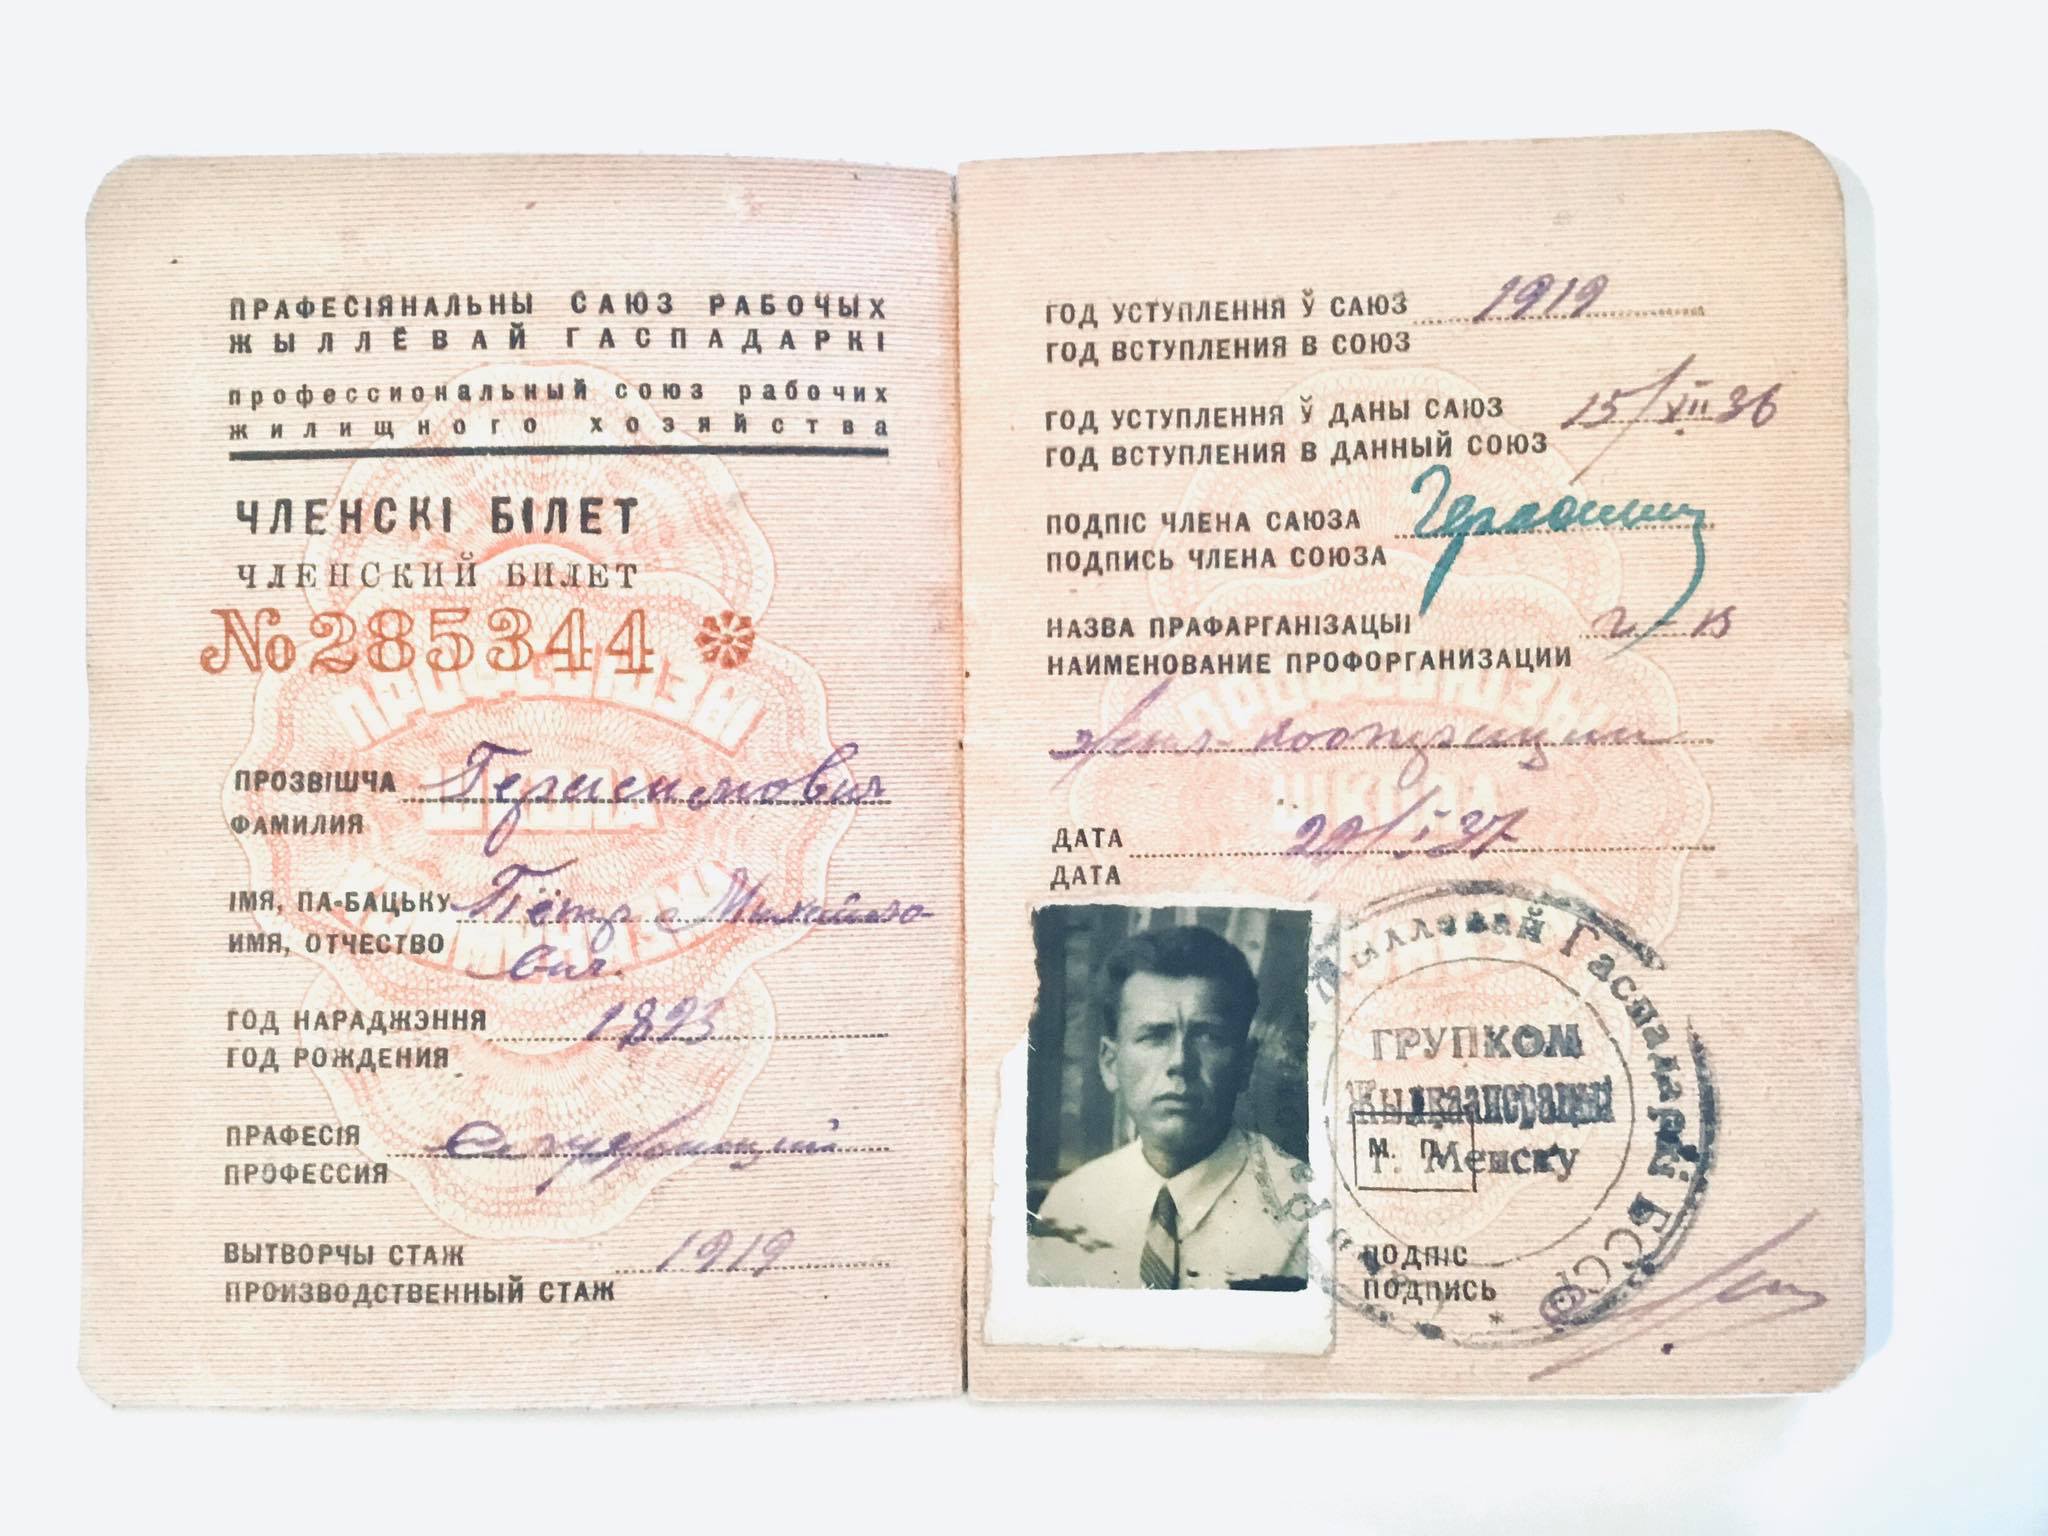 ПРАФЕСІЯНАЛЬНЫ САЮЗ РАБОЧЫХ
ЖЫЛЛЁВАЙ ГАСПАДАРКІ
профессиональный союз рабочих
жилищного хозяйства
ЧЛЕНСКІ БІЛЕТ
ЧЛЕНСКИЙ БИЛЕТ
№ 285344
ПРОФСОЮЗЫ
ШКОЛА
КОММУНИЗМА
ПРОЗВІШЧА Герасимович
ФАМИЛИЯ
ІМЯ, ПА-БАЦЬКУ Пётр Михайло-
ИМЯ, ОТЧЕСТВО вич.
ГОД НАРАДЖЭННЯ 1893
ГОД РОЖДЕНИЯ
ПРАФЕСІЯ
ПРОФЕССИЯ
ВЫТВОРЧЫ СТАЖ 1919
ПРОИЗВОДСТВЕННЫЙ СТАЖ
ГОД УСТУПЛЕННЯ Ў САЮЗ 1919
ГОД ВСТУПЛЕНИЯ В СОЮЗ
ГОД УСТУПЛЕННЯ Ў ДАНЫ САЮЗ 15/XII 36
ГОД ВСТУПЛЕНИЯ В ДАННЫЙ СОЮЗ
ПОДПІС ЧЛЕНА САЮЗА
ПОДПИСЬ ЧЛЕНА СОЮЗА
НАЗВА ПРАФАРГАНІЗАЦЫІ
НАИМЕНОВАНИЕ ПРОФОРГАНИЗАЦИИ
кооперации
ПРОФСОЮЗЫ
ШКОЛА
ДАТА 29/I 37
ДАТА
Жыллёвай Гаспадаркі БССР
ГРУПКОМ
Жылкааперацыі
г. Менску
М. П.
ПОДПІС
ПОДПИСЬ